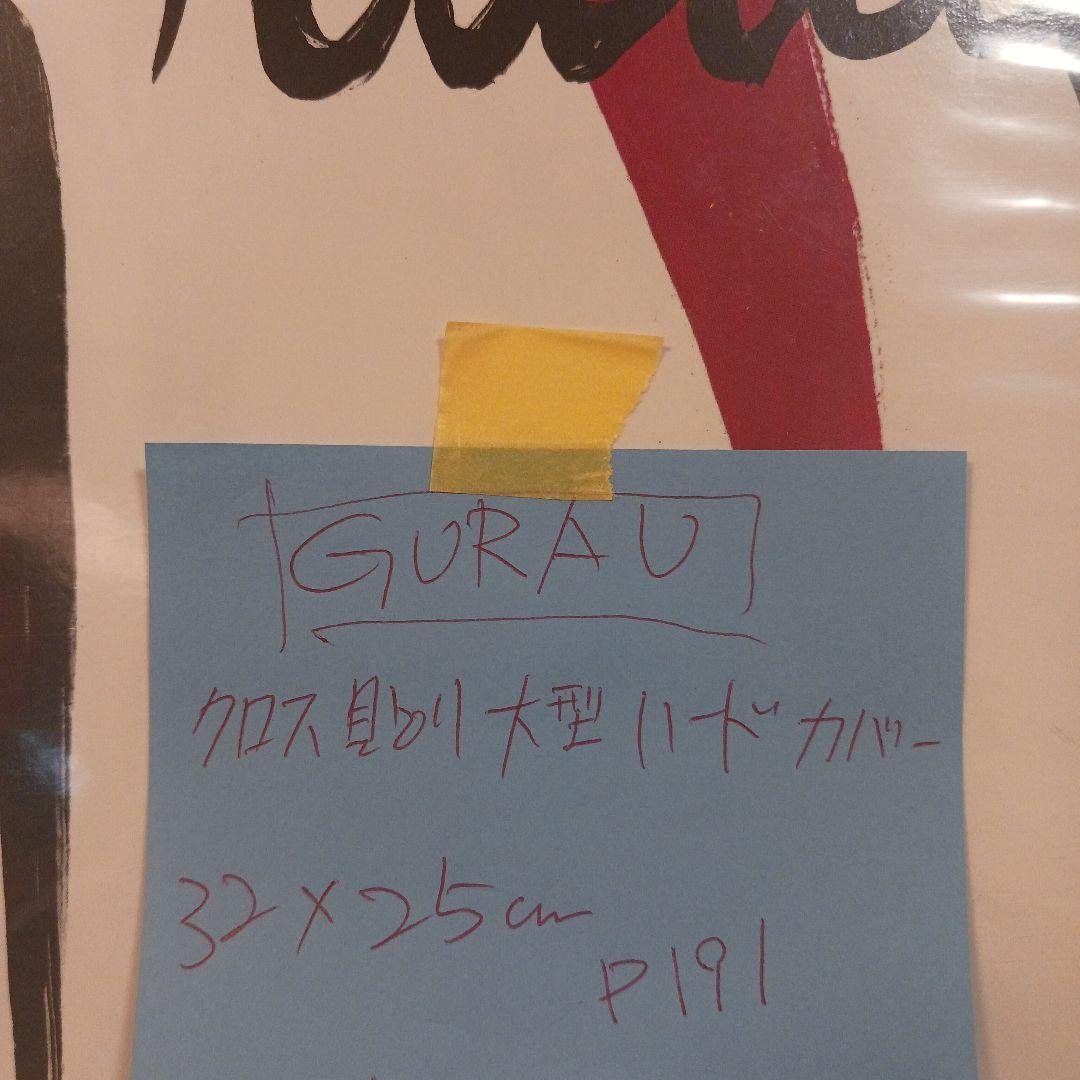 GURAU
クロス貼り大型ハードカバー
32×25cm
P191